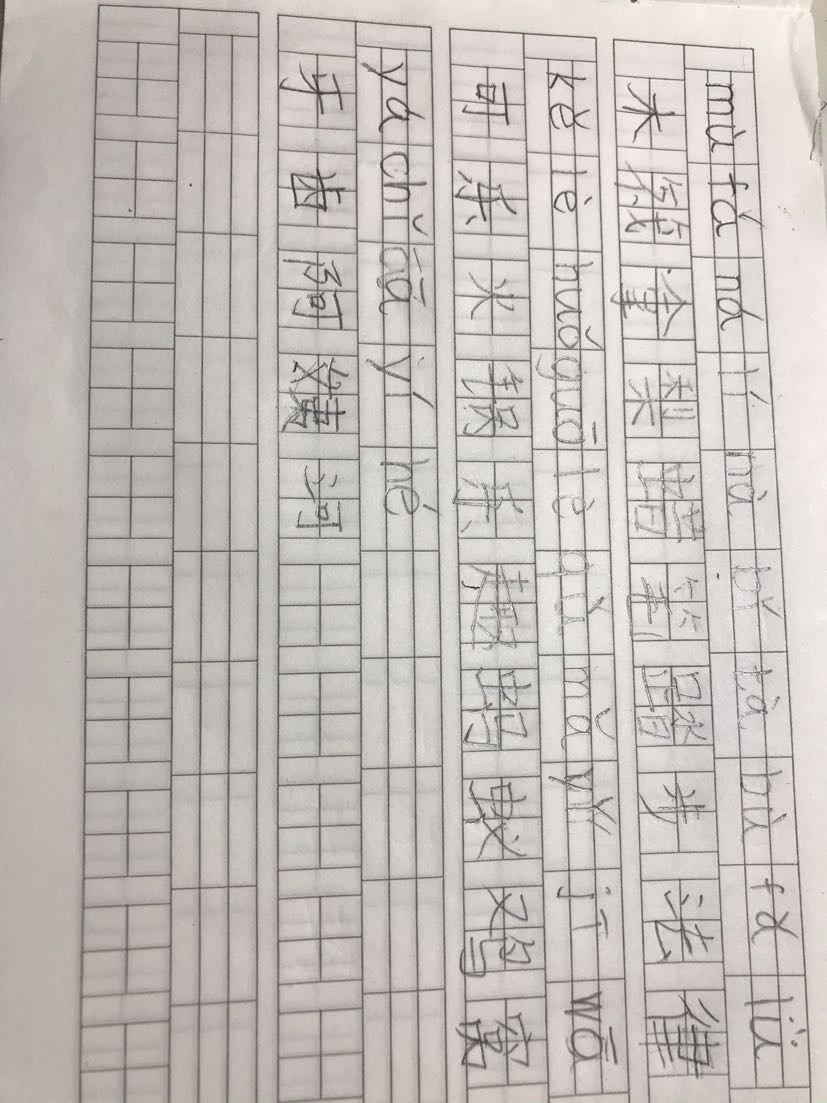 mù fá ná lí nà bǐ tà bù fǎ lǜ
木筏拿梨蜡笔踏步法律
kě lè huǒ guō lè qù mǎ yǐ jī wō
可乐火锅乐趣蚂蚁鸡窝
yá chǐ ā yí hé
牙齿阿姨河